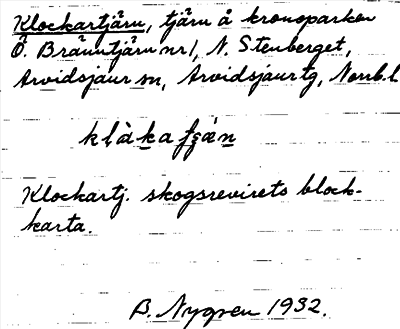 Klockartjärn, tjärn å kronoparken
Ö. Bränntjärn nr 1, N. Stenberget,
Arvidsjaur sn, Arvidsjaur tg, Norrb. l
Klockartj. skogsrevirets block-
karta.
B. Nygren 1932.